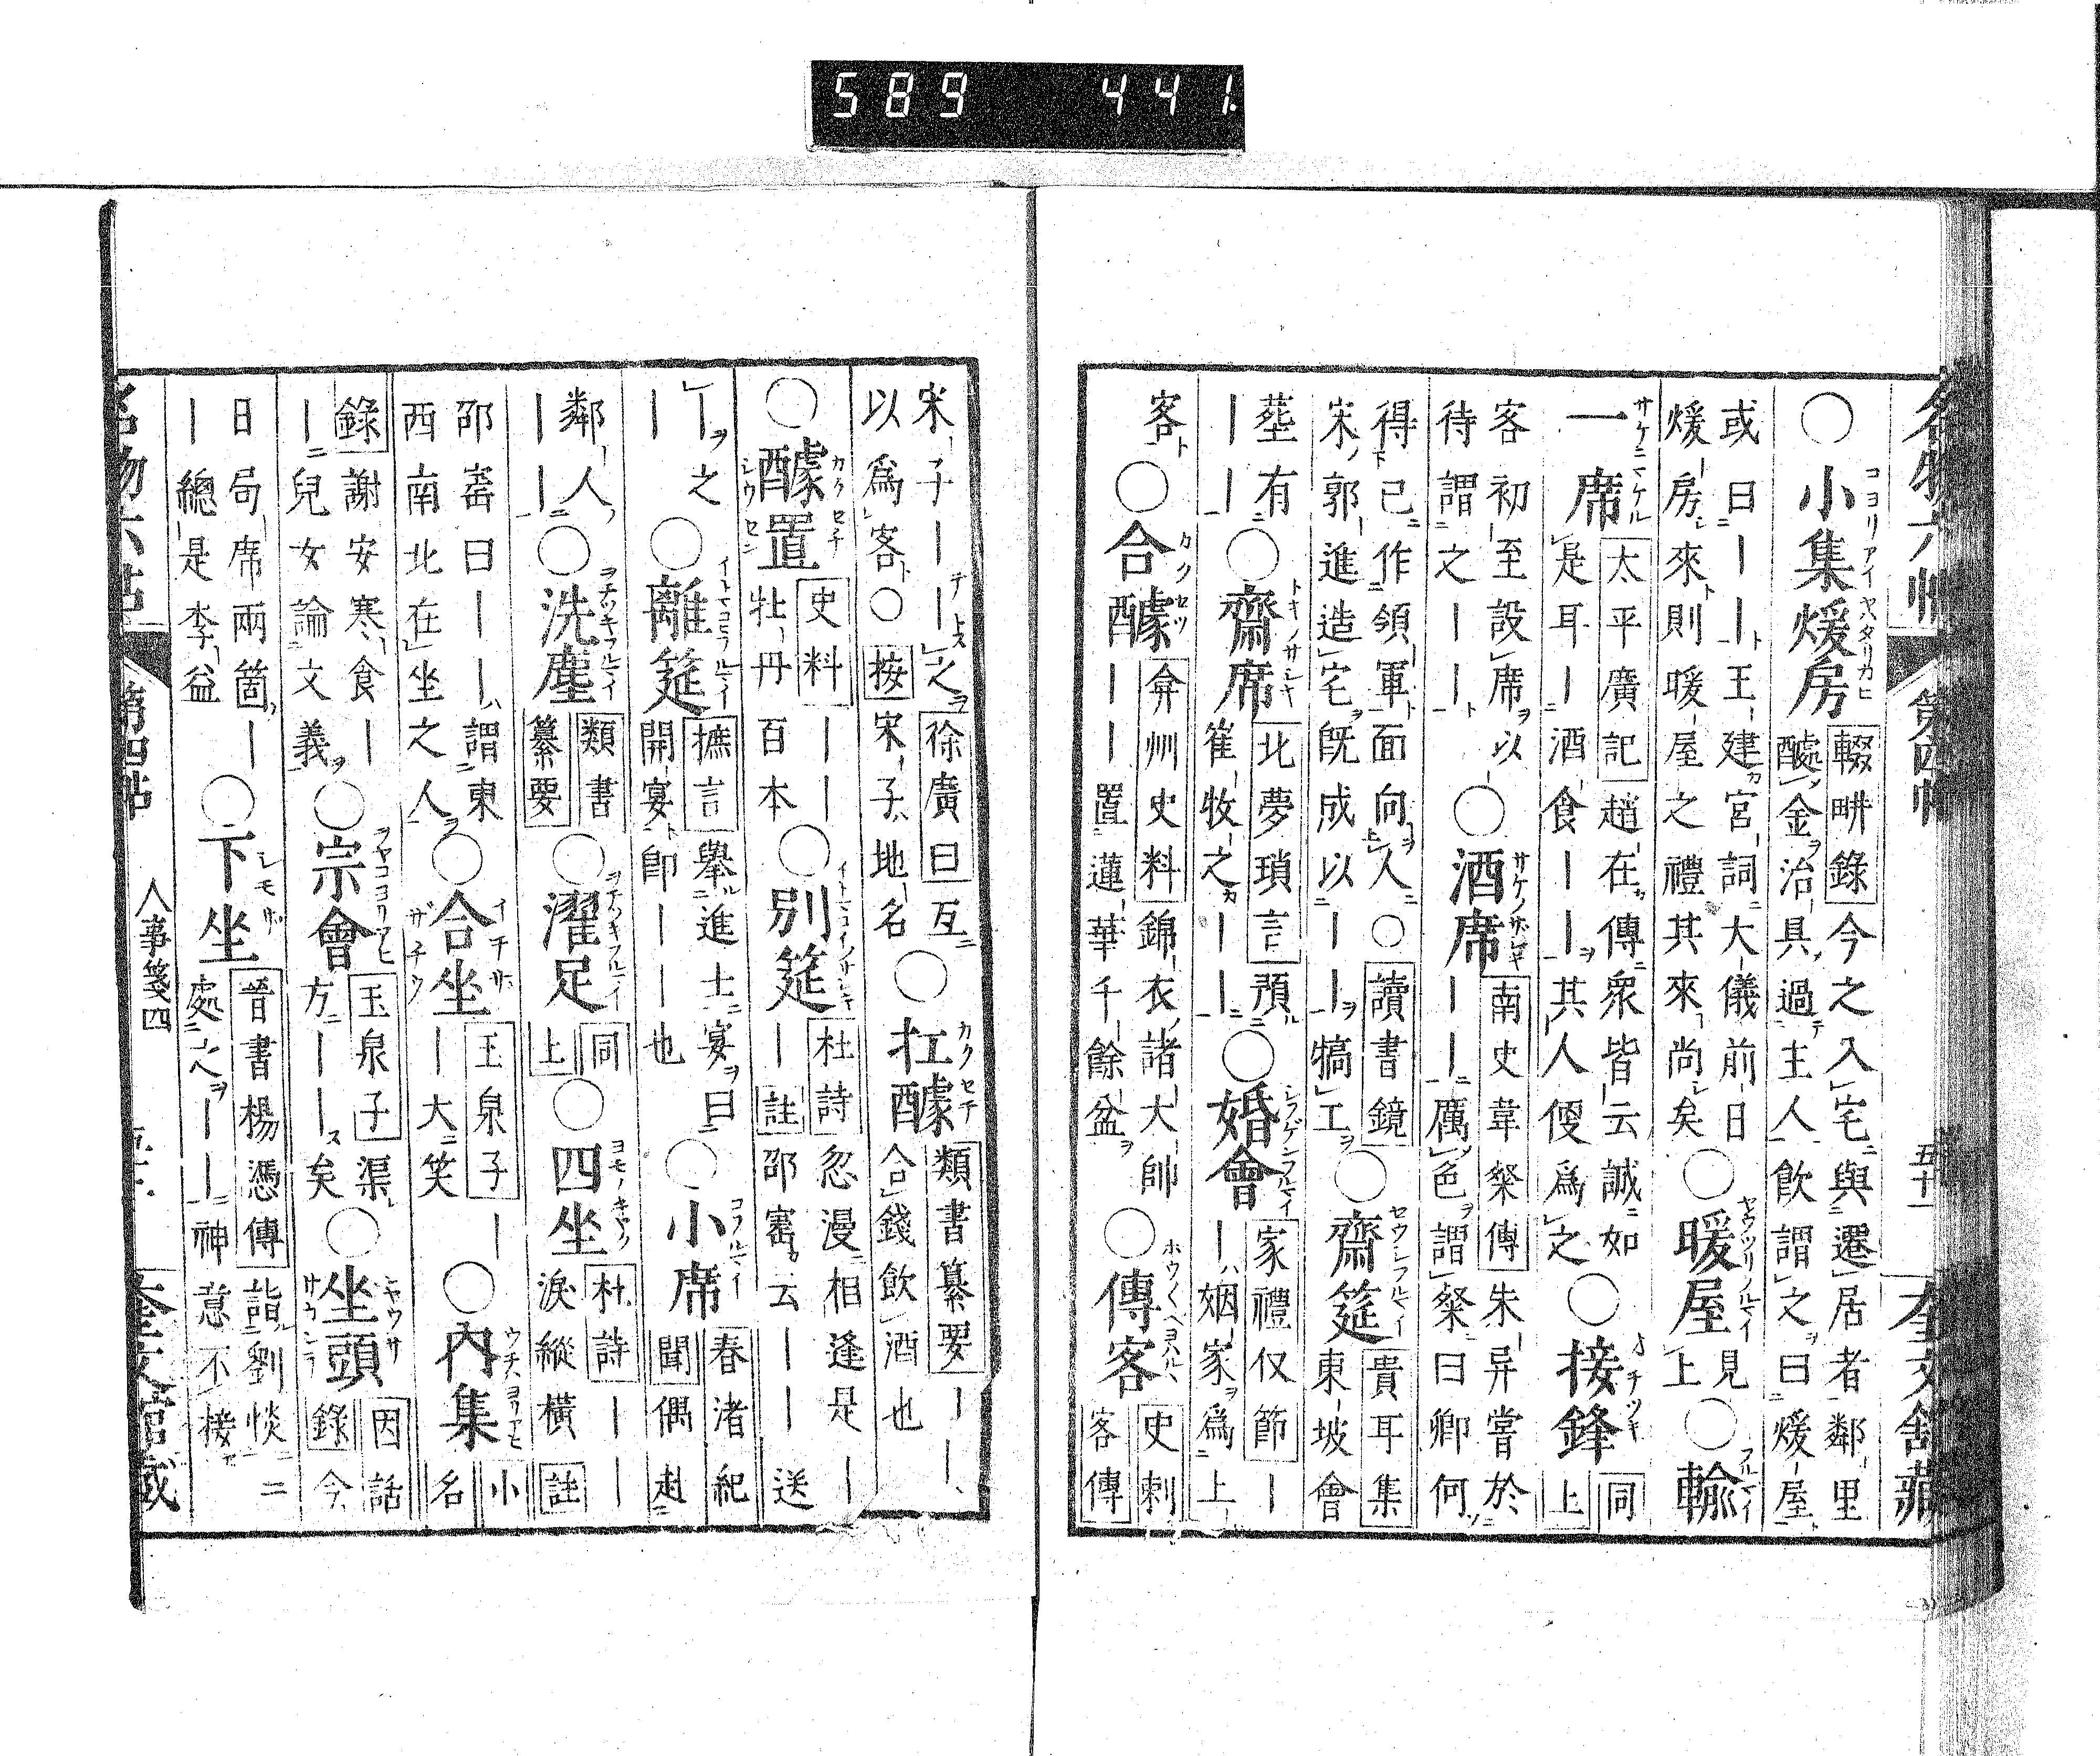 589 441
名物六帖 第四帖 五十一 奎文館藏
○小集煖房 輟畊錄 今之入宅與遷居者鄰里
醵金治具過主人飲謂之曰煖屋
或曰｜｜王建宮詞大儀前日
煖房來則暖屋之禮其來尚矣 ○暖屋 見上 ○輸
一席 太平廣記 趙在傳衆皆云誠如
是耳｜酒食｜｜其人便爲之 ○接鋒 同上
客初至設席以
待謂之｜｜ ○酒席 南史韋粲傳 朱异嘗於
｜｜厲色謂粲曰卿何
得已作領軍面向人○讀書鏡
宋郭進造宅旣成以｜｜犒工 ○齋筵 貴耳集
東坡會
葬有
｜｜ ○齋席 北夢瑣言 預
崔牧之｜｜ ○婚會 家禮仪節｜
｜姻家爲上
客 ○合醵 弇州史料 錦衣諸大帥
｜｜置蓮華千餘盆 ○傳客 史剌
客傳
宋子｜｜之 徐廣曰互
以爲客○按宋子地名 ○扛醵 類書纂要｜｜
合錢飲酒也
○醵置 史料｜｜
牡丹百本 ○別筵 杜詩 忽漫相逢是｜
｜註 邵寶云｜｜送
｜之
｜ ○離筵 摭言 舉進士宴曰
開宴卽｜｜也 ○小席 春渚紀
聞 偶赴
鄰人
｜｜ ○洗塵 類書
纂要 ○濯足 同上 ○四坐 杜詩｜｜
淚縱橫註
邵寶曰｜｜謂東
西南北在坐之人 ○合坐 玉泉子｜
｜大笑 ○內集 小
名
錄 謝安寒食｜
｜兒女論文義 ○宗會 玉泉子 渠
方｜｜矣 ○坐頭 因話
錄 今
日局席兩箇｜
｜總是李益 ○下坐 晉書楊憑傳 詣劉惔二
處之｜｜神意不接
名物六帖 第四帖 人事箋四 奎文館藏